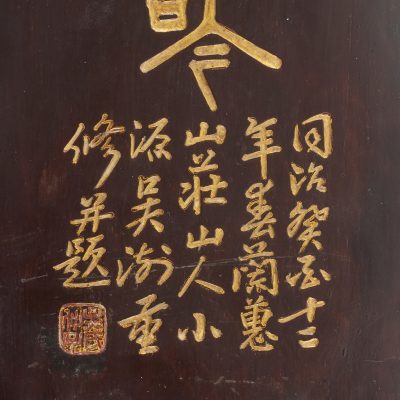 同治癸酉十二
年春蘭蕙
山莊山人小
源吳重
修并題